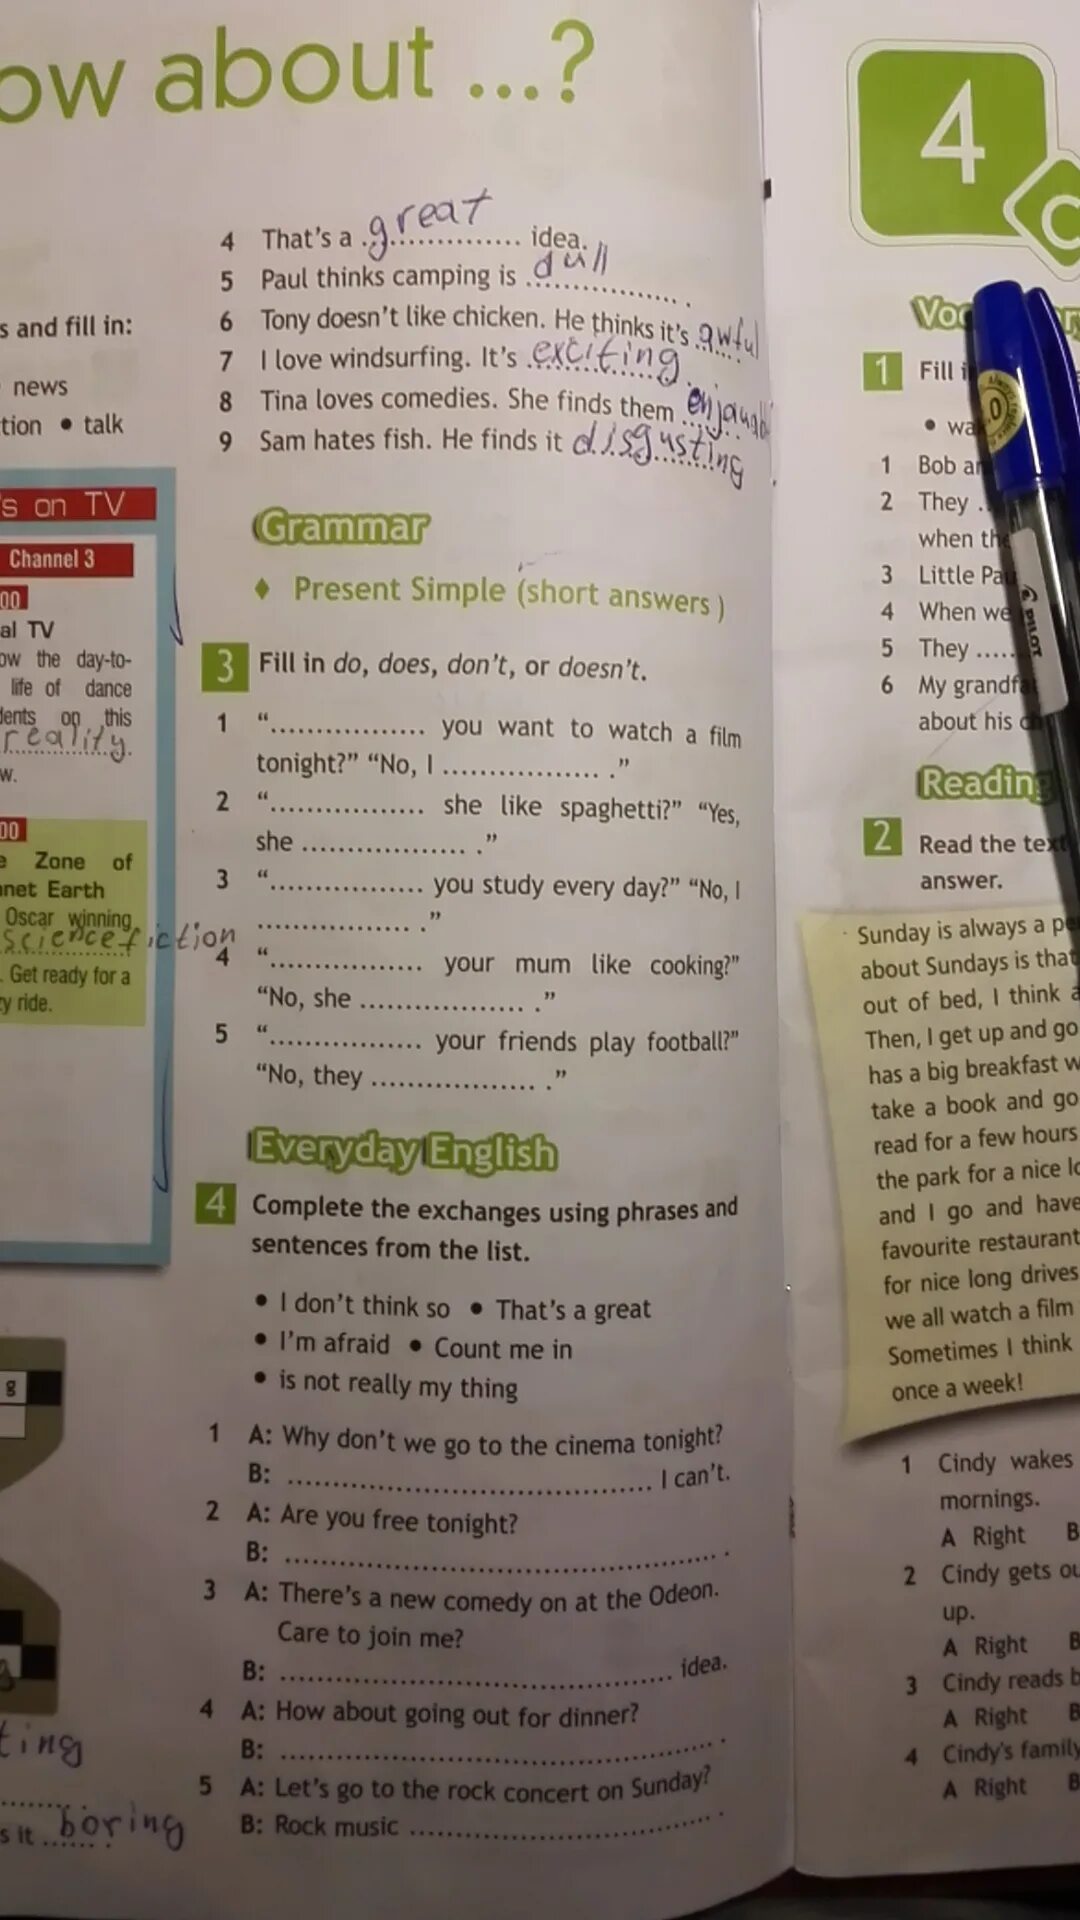 ow about ...?
4 That's a great idea.
5 Paul thinks camping is dull.
6 Tony doesn't like chicken. He thinks it's awful
7 I love windsurfing. It's exciting.
8 Tina loves comedies. She finds them
9 Sam hates fish. He finds it disgusting.
s and fill in:
news
tion • talk
's on TV
Channel 3
00
al TV
ow the day-to-
life of dance
dents on this
reality
w.
00
e Zone of
anet Earth
Oscar winning
science fiction
. Get ready for a
ry ride.
g
ting
s it boring
Grammar
♦ Present Simple (short answers)
3 Fill in do, does, don't, or doesn't.
1 "................ you want to watch a film
tonight?" "No, I ................ ."
2 "................ she like spaghetti?" "Yes,
she ................. ."
3 "................ you study every day?" "No, I
................ ."
4 "................ your mum like cooking?"
"No, she ................. ."
5 "................ your friends play football?"
"No, they ................. ."
Everyday English
4 Complete the exchanges using phrases and
sentences from the list.
• I don't think so • That's a great
• I'm afraid • Count me in
• is not really my thing
1 A: Why don't we go to the cinema tonight?
B: ...................................... I can't.
2 A: Are you free tonight?
B: ............................................. .
3 A: There's a new comedy on at the Odeon.
Care to join me?
B: ......................................... idea.
4 A: How about going out for dinner?
B: ............................................. .
5 A: Let's go to the rock concert on Sunday?
B: Rock music ............................... .
4
C
Voc
1 Fill i
• wa
1 Bob a
2 They ..
when the
3 Little Pau
4 When we
5 They ......
6 My grandfa
about his ch
Reading
2 Read the text
answer.
Sunday is always a pe
about Sundays is that
out of bed, I think a
Then, I get up and go
has a big breakfast w
take a book and go
read for a few hours
the park for a nice lo
and I go and have
favourite restaurant
for nice long drives
we all watch a film
Sometimes I think
once a week!
1 Cindy wakes
mornings.
A Right B
2 Cindy gets ou
up.
A Right B
3 Cindy reads b
A Right B
4 Cindy's family
A Right B
PILOT